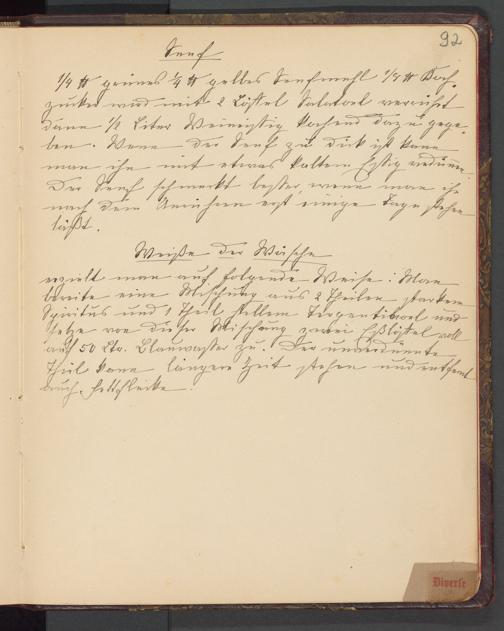 92
Senf
1/4 ℔ grünes 1/4 ℔ gelbes Senfmehl 1/4 ℔ Koch-
zucker wird mit 2 Löffel Salatoel verrührt
dann 1/2 Liter Weinessig kochend dazu gege-
ben. Wenn der Senf zu dick ist kann
man ihn mit etwas kaltem Essig verdünnen.
Der Senf schmeckt besser, wenn man ihn
nach dem Anrühren erst einige Tage stehen
läßt.
Weiße der Wäsche
erzielt man auf folgende Weise: Man
bereite eine Mischung aus 2 Theilen starkem
Spiritus und 1 Theil hellem Terpentinoel und
setze von dieser Mischung zwei Eßlöffel voll
auf 50 Ltr. Blauwasser zu. Der unverdünnte
Theil kann längere Zeit stehen und entfernt
auch Fettflecke.
Diverse